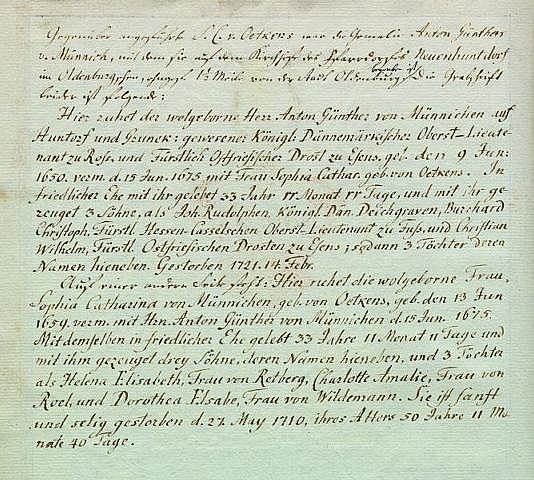 Gegenüber angeführte S. C. v. Oetkens war die Gemalin Anton Günthers
v. Münnich, mit dem sie auf dem Kirchhofe des Neuenhuntdorf
im Oldenburgschen, ½ Meile von der Stadt Oldenburg begraben ist. Die Grabschrift
beider ist folgende:
Hier ruhet der wolgeborne Herr Anton Günther von Münnichen auf
Huntorf und Brunek: gewesener Königl: Dännemärkischer Oberst-Lieute-
nant zu Roß, und Fürstlich Ostfriesischer Drost zu Esens, geb. den 9 Jun:
1650. verm. d. 15 Jun. 1675. mit Frau Sophia Cathar. geb. von Oetkens. In
friedlicher Ehe mit ihr gelebet 33 Jahr 11 Monat 11 Tage, und mit ihr ge-
zeuget 3 Söhne, als Joh. Rudolphen, Königl. Dän. Deichgraven, Burchard
Christoph, Fürstl. Hessen-Casselschen Oberst-Lieutenant zu Fuß, und Christian
Wilhelm, Fürstl. Ostfriesischen Drosten zu Esens; sodann 3 Töchter deren
Namen hieneben. Gestorben 1721. 14. Febr.
Auf einer andern Seite steht: Hier ruhet die wolgeborne Frau
Sophia Catharina von Münnichen, geb. von Oetkens, geb. den 13 Jun
1659. verm. mit Hrn. Anton Günther von Münnichen d. 15 Jun. 1675.
Mit demselben in friedlicher Ehe gelebt 33 Jahre 11 Monat 11 Tage und
mit ihm gezeuget drey Söhne, deren Namen hieneben, und 3 Töchter
als Helena Elisabeth, Frau von Retberg, Charlotte Amalie, Frau von
Roel, und Dorothea Elsabe, Frau von Wildemann. Sie ist sanft
und selig gestorben d. 27. May 1710, ihres Alters 50 Jahre 11 Mo-
nate 40 Tage.